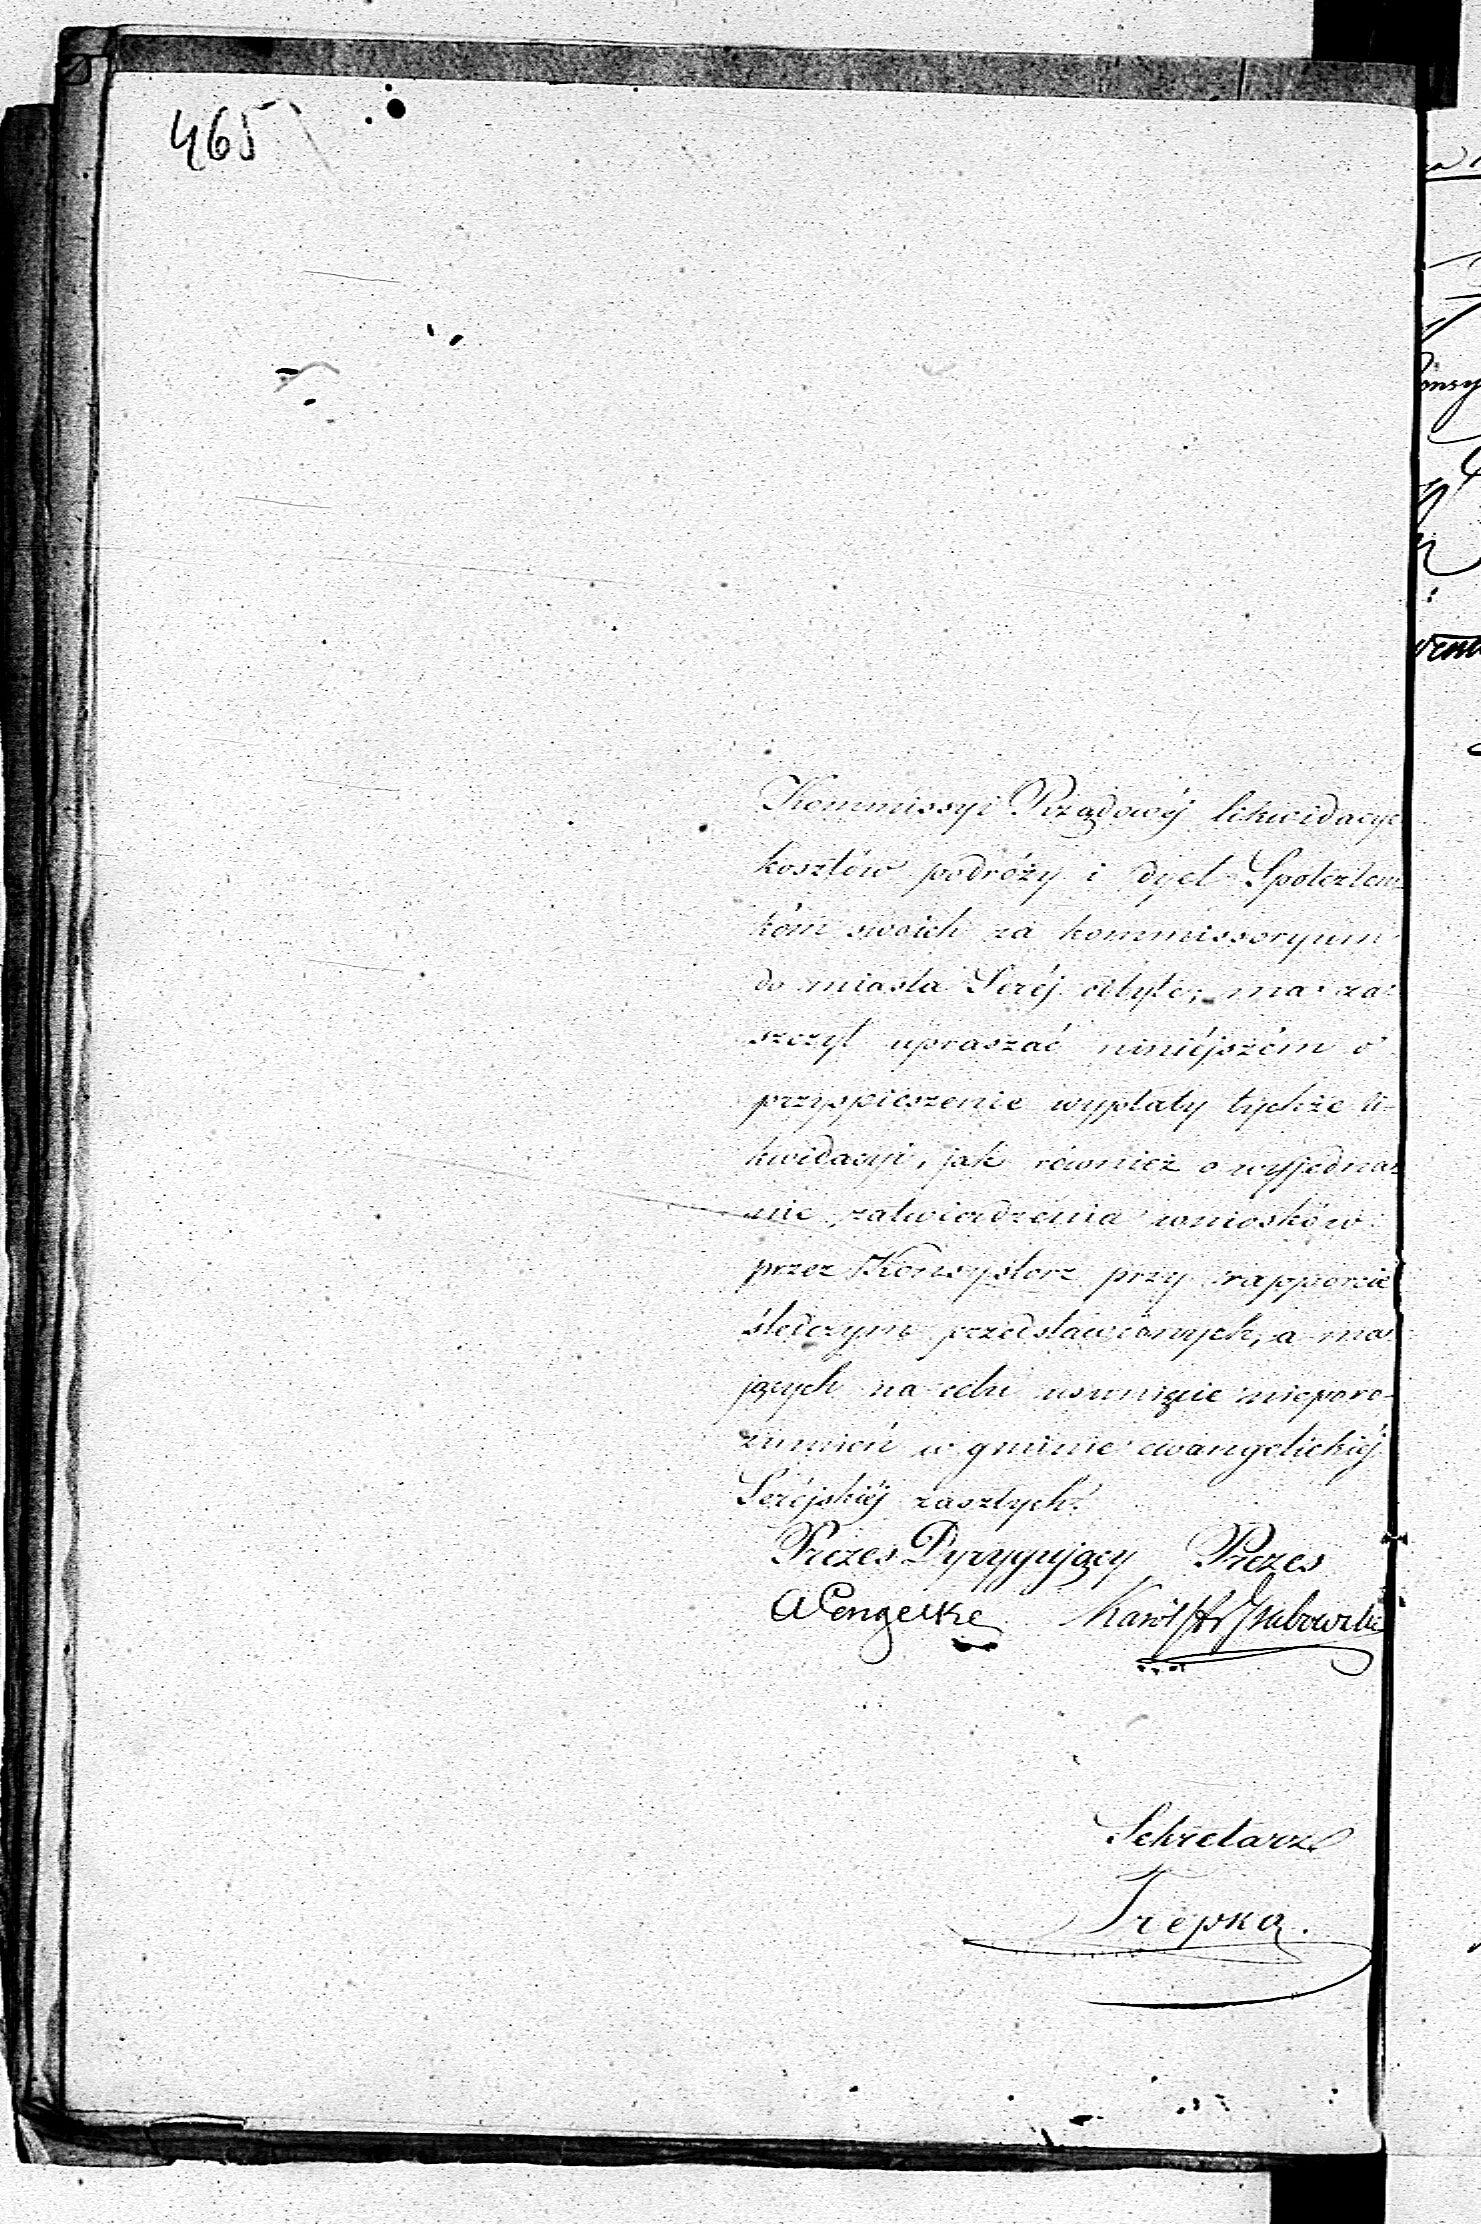 465
Kommissyi Rządowéj likwidacye
kosztów podróży i dyet Spółczłon=
kóm swoich za kommissoryum
do miasta Seréj odbyte, ma za=
szczyt upraszać niniéjszém o
przyspieszenie wypłaty tychże li=
kwidacyi, jak również o wyjedna=
nie zatwierdzenia wniosków
przez Konsystorz przy rapporcie
śledczym przedstawionych, a ma=
jących na celu usunięcie nieporo=
zumień w gminie ewangelickiéj
Seréjskiéj zaszłych.
Prezes Dyrygujący Prezes
Karól Hr Grabowski
Sekretarz
Trepka.